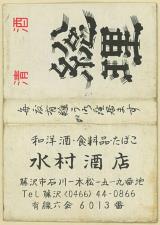 清酒
総理
毎度有難う御座居ます
和洋酒・食料品・たばこ
水村酒店
藤沢市石川一木松一五一九番地
Tel 藤沢 (0466) 44-0866
有線六会 6013番